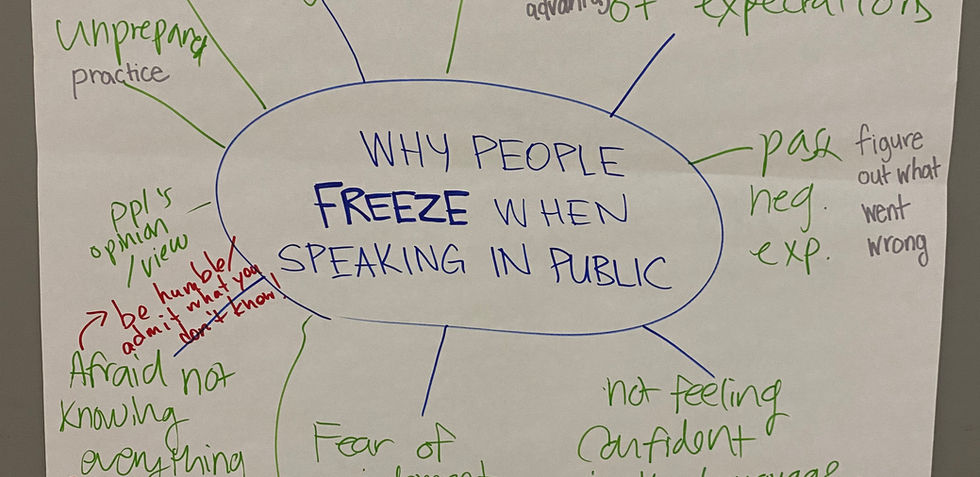 advantag of expectations
Unprepared
practice
WHY PEOPLE
FREEZE WHEN
SPEAKING IN PUBLIC
past
neg.
exp.
figure
out what
went
wrong
ppl's
opinion
/view
be humble/
admit what you
don't know!
Afraid not
knowing
everything
Fear of
not feeling
confident